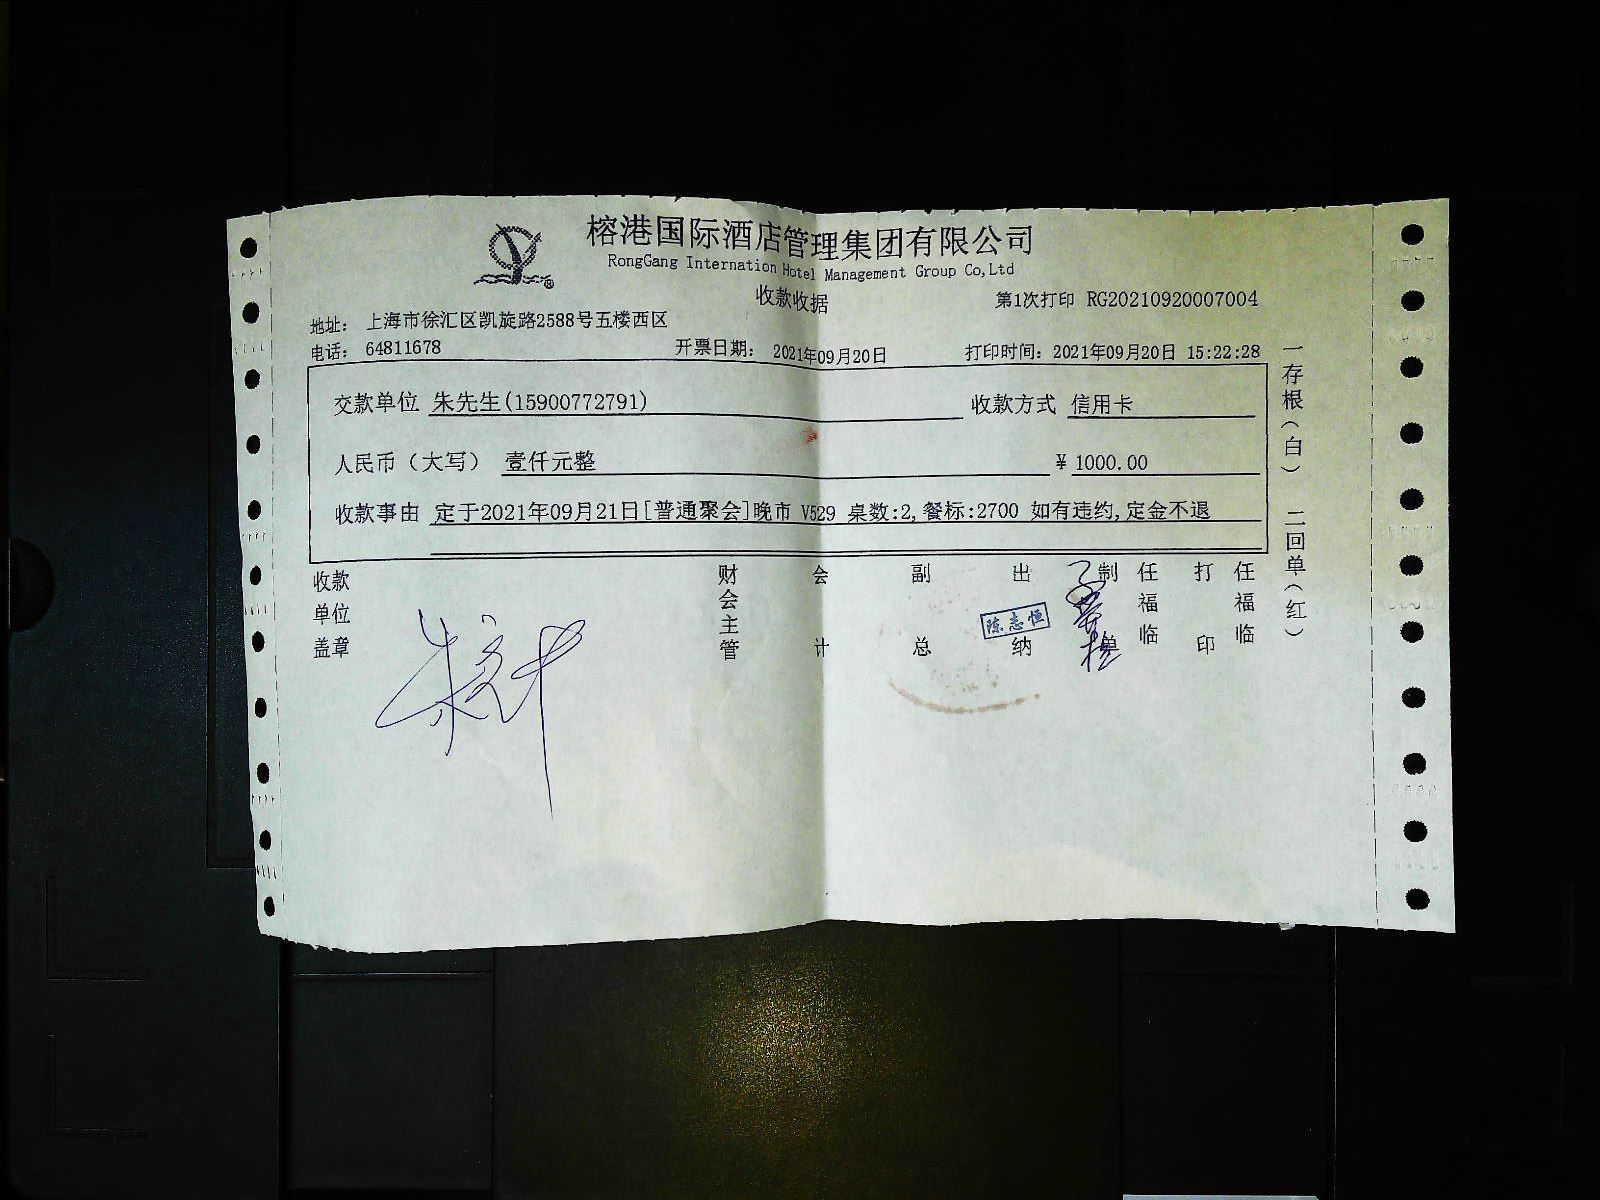 榕港国际酒店管理集团有限公司
RongGang Internation Hotel Management Group Co,Ltd
收款收据
第1次打印 RG20210920007004
地址： 上海市徐汇区凯旋路2588号五楼西区
电话： 64811678 开票日期： 2021年09月20日 打印时间：2021年09月20日 15:22:28
交款单位 朱先生(15900772791) 收款方式 信用卡
人民币（大写） 壹仟元整 ¥ 1000.00
收款事由 定于2021年09月21日[普通聚会]晚市 V529 桌数:2,餐标:2700 如有违约,定金不退
收款单位盖章
财会主管
会计
副总
出纳
陈志恒
制单
任福临
打印
任福临
一存根（白） 二回单（红）